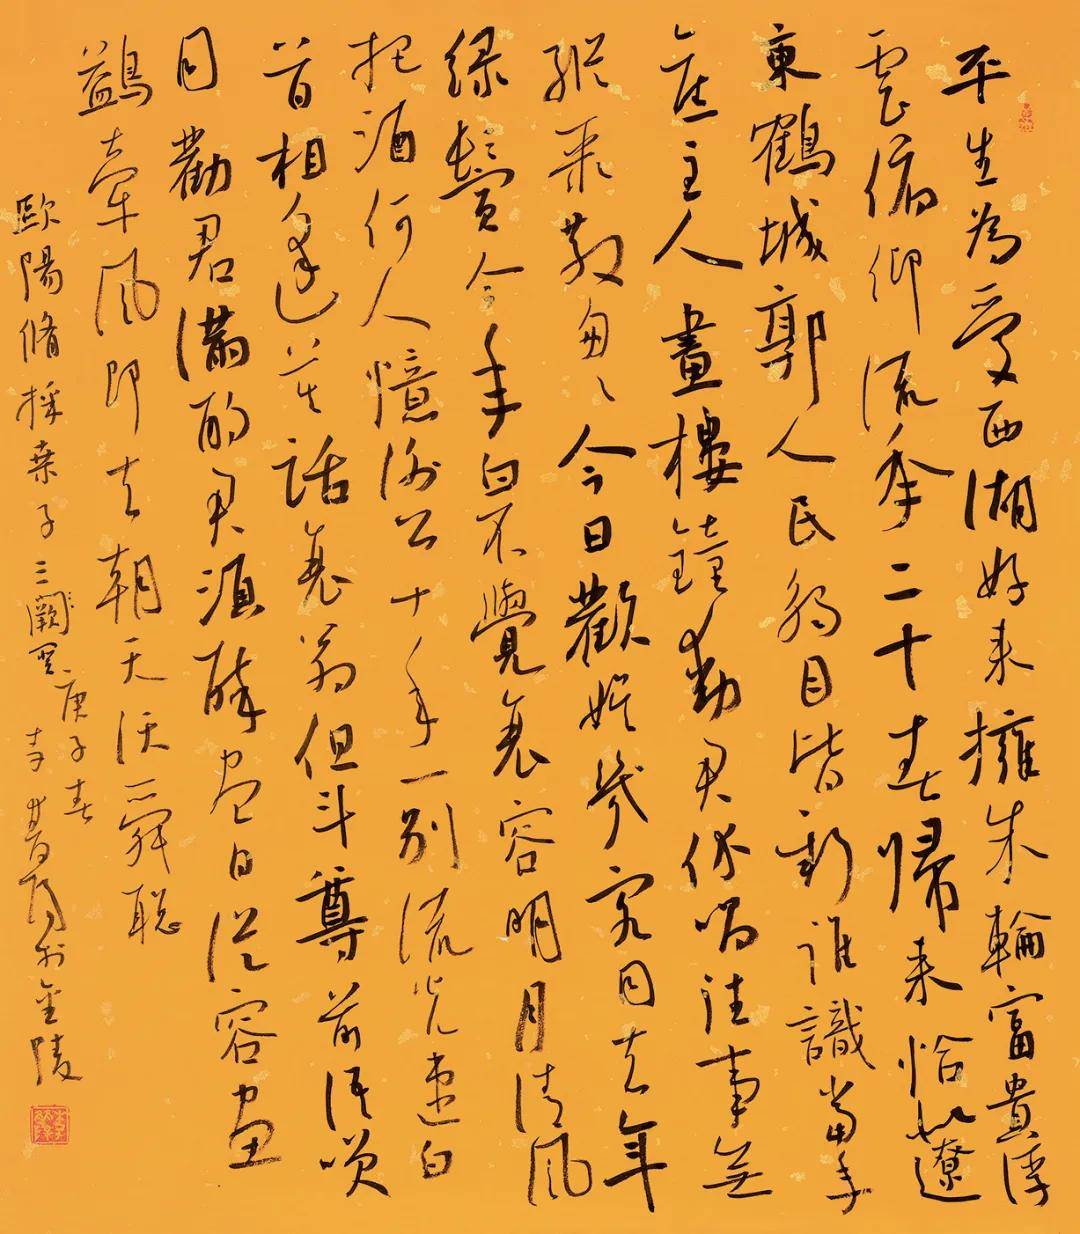 平生為愛西湖好来擁朱輪富貴浮
雲俯仰流年二十春歸来恰似遼
東鶴城郭人民觸目皆新誰識當年
舊主人畫樓鐘動君休唱往事無
蹤聚散匆匆今日歡娛幾客同去年
綠鬢今年白不覺衰容明月清風
把酒何人憶謝公十年一別流光速白
首相逢莫話衰翁但斗尊前語笑
同勸君滿酌君須醉盡日從容畫
鷁牽風即去朝天沃舜聰
歐陽脩採桑子三闋
庚子春
李於金陵